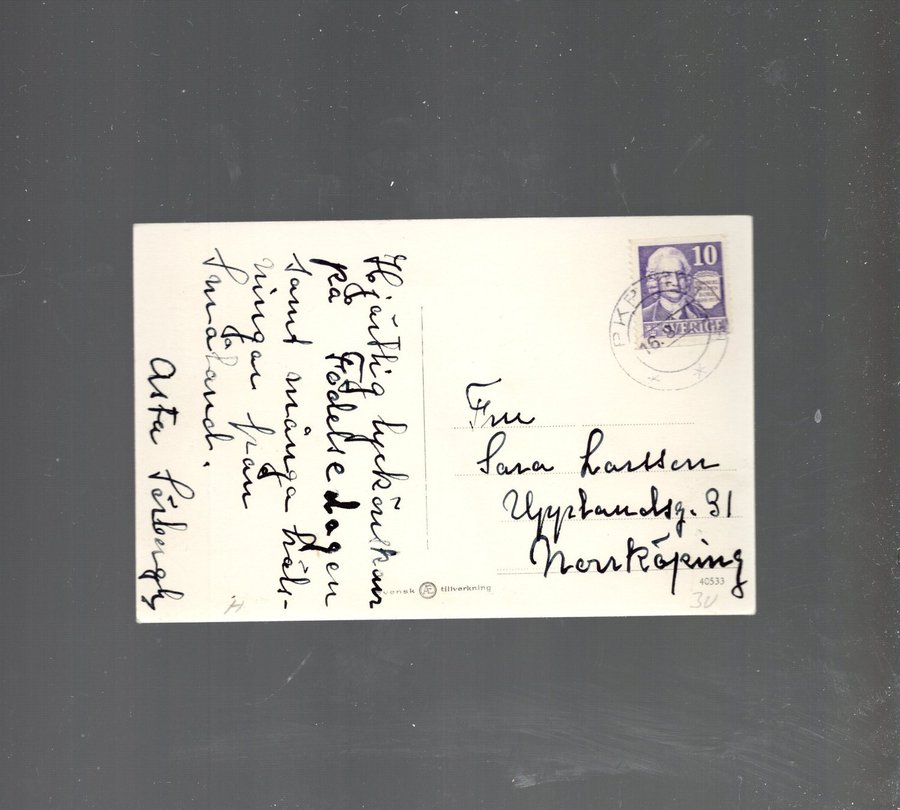 Hjärtlig lyckönskan
på Födelsedagen
samt många häls-
ningar från
Småland.
Asta Sörbergh
10
SVERIGE
PKP
16.
Fru
Sara Larsson
Upplandsg. 31
Norrköping
Svensk Æ tillverkning
40533
30